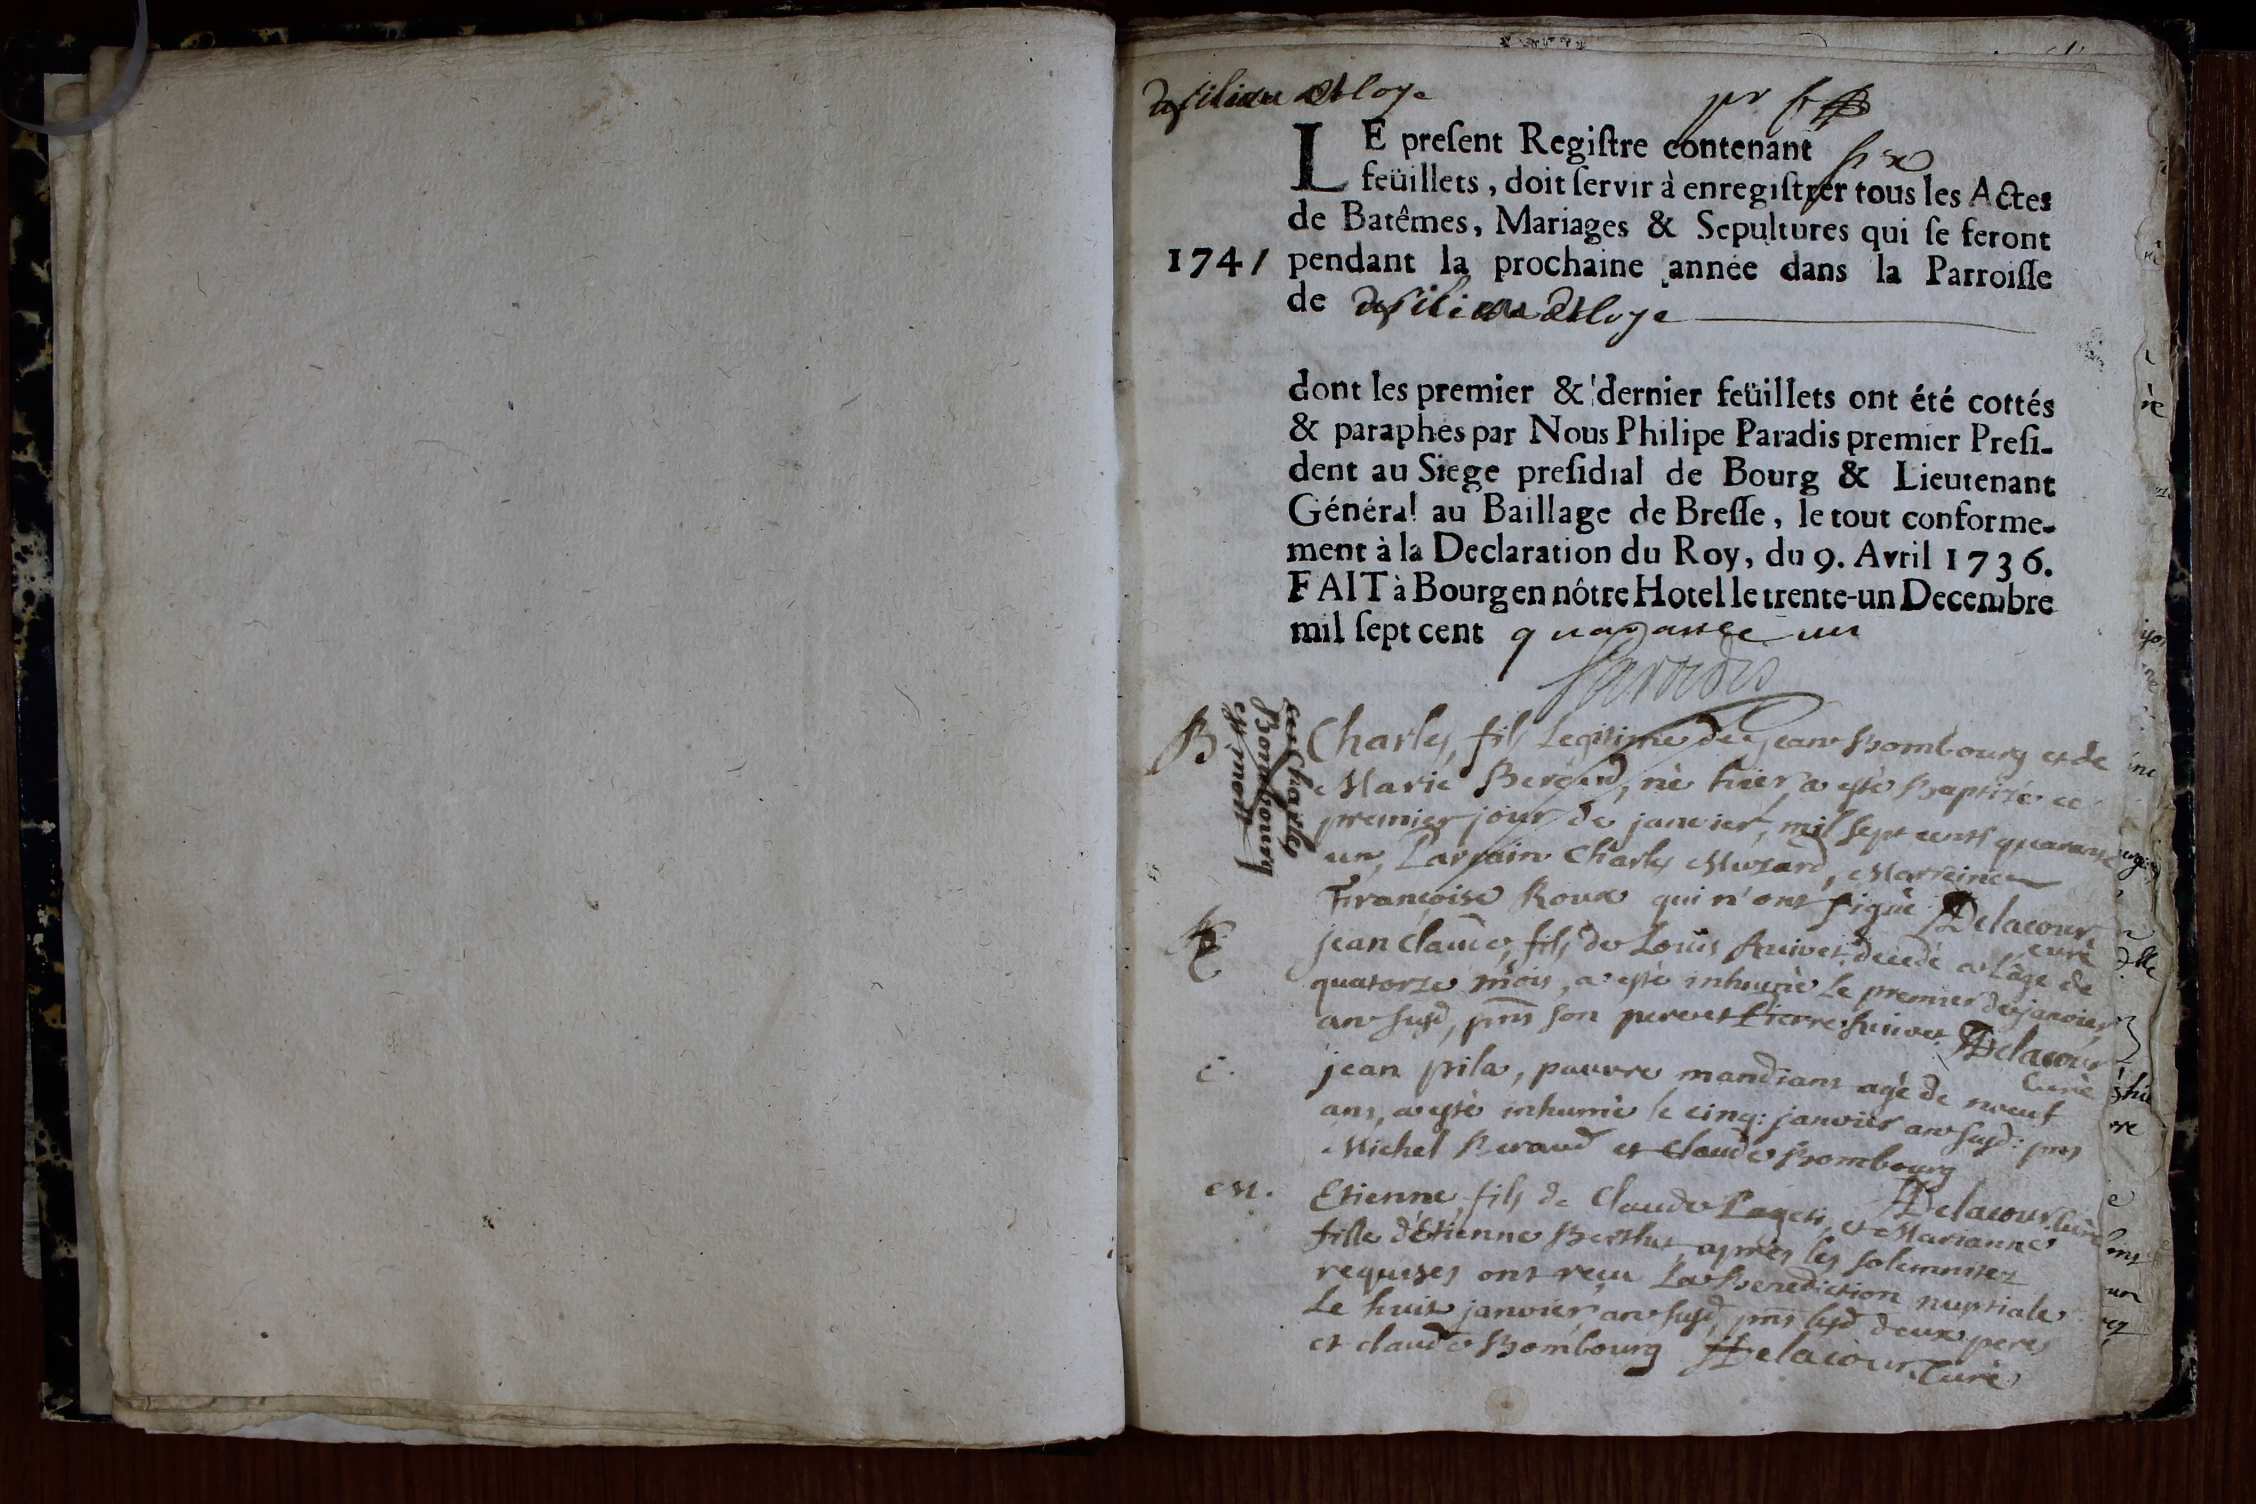 LE preſent Regiſtre contenant six
feüillets, doit ſervir à enregiſtrer tous les Actes
de Batêmes, Mariages & Sepultures qui ſe feront
1741 pendant la prochaine année dans la Parroiſſe
de
dont les premier & dernier feüillets ont été cottés
& paraphés par Nous Philipe Paradis premier Preſi-
dent au Siege preſidial de Bourg & Lieutenant
Général au Baillage de Breſſe, le tout conforme-
ment à la Declaration du Roy, du 9. Avril 1736.
FAIT à Bourg en nôtre Hotel le trente-un Decembre
mil ſept cent quarante un
Paradis
B
cet Charles
Bombourg
est mort
Charles, fils Legitime de Jean Bombourg et de
Marie, né hier, a esté Baptizé ce
premier jour de janvier, mil sept cents quarante
un, Parrain Charles Muzard, Marreine
Françoise Roux qui n'ont signé Delacour
curé
jean Claude, fils de Loüis décédé a l'âge de
quatorze mois, a esté inhumé le premier de janvier,
an susd, pnts son pere et Pierre Delacour
Curé
jean pila, pauvre mandiant agé de noeuf
ans, a esté inhumé le cinq: janvier an susd: pnts
Michel Beraud et Claude Bombourg
Delacour Curé
M.
Etienne, fils de Claude et Marianne
fille d'Etienne Berthet, apres les solemnitez
requises ont reçu La Benediction nuptiale
Le huit janvier, an susd, pnts lesd deux peres
et claude Bombourg Delacour Curé